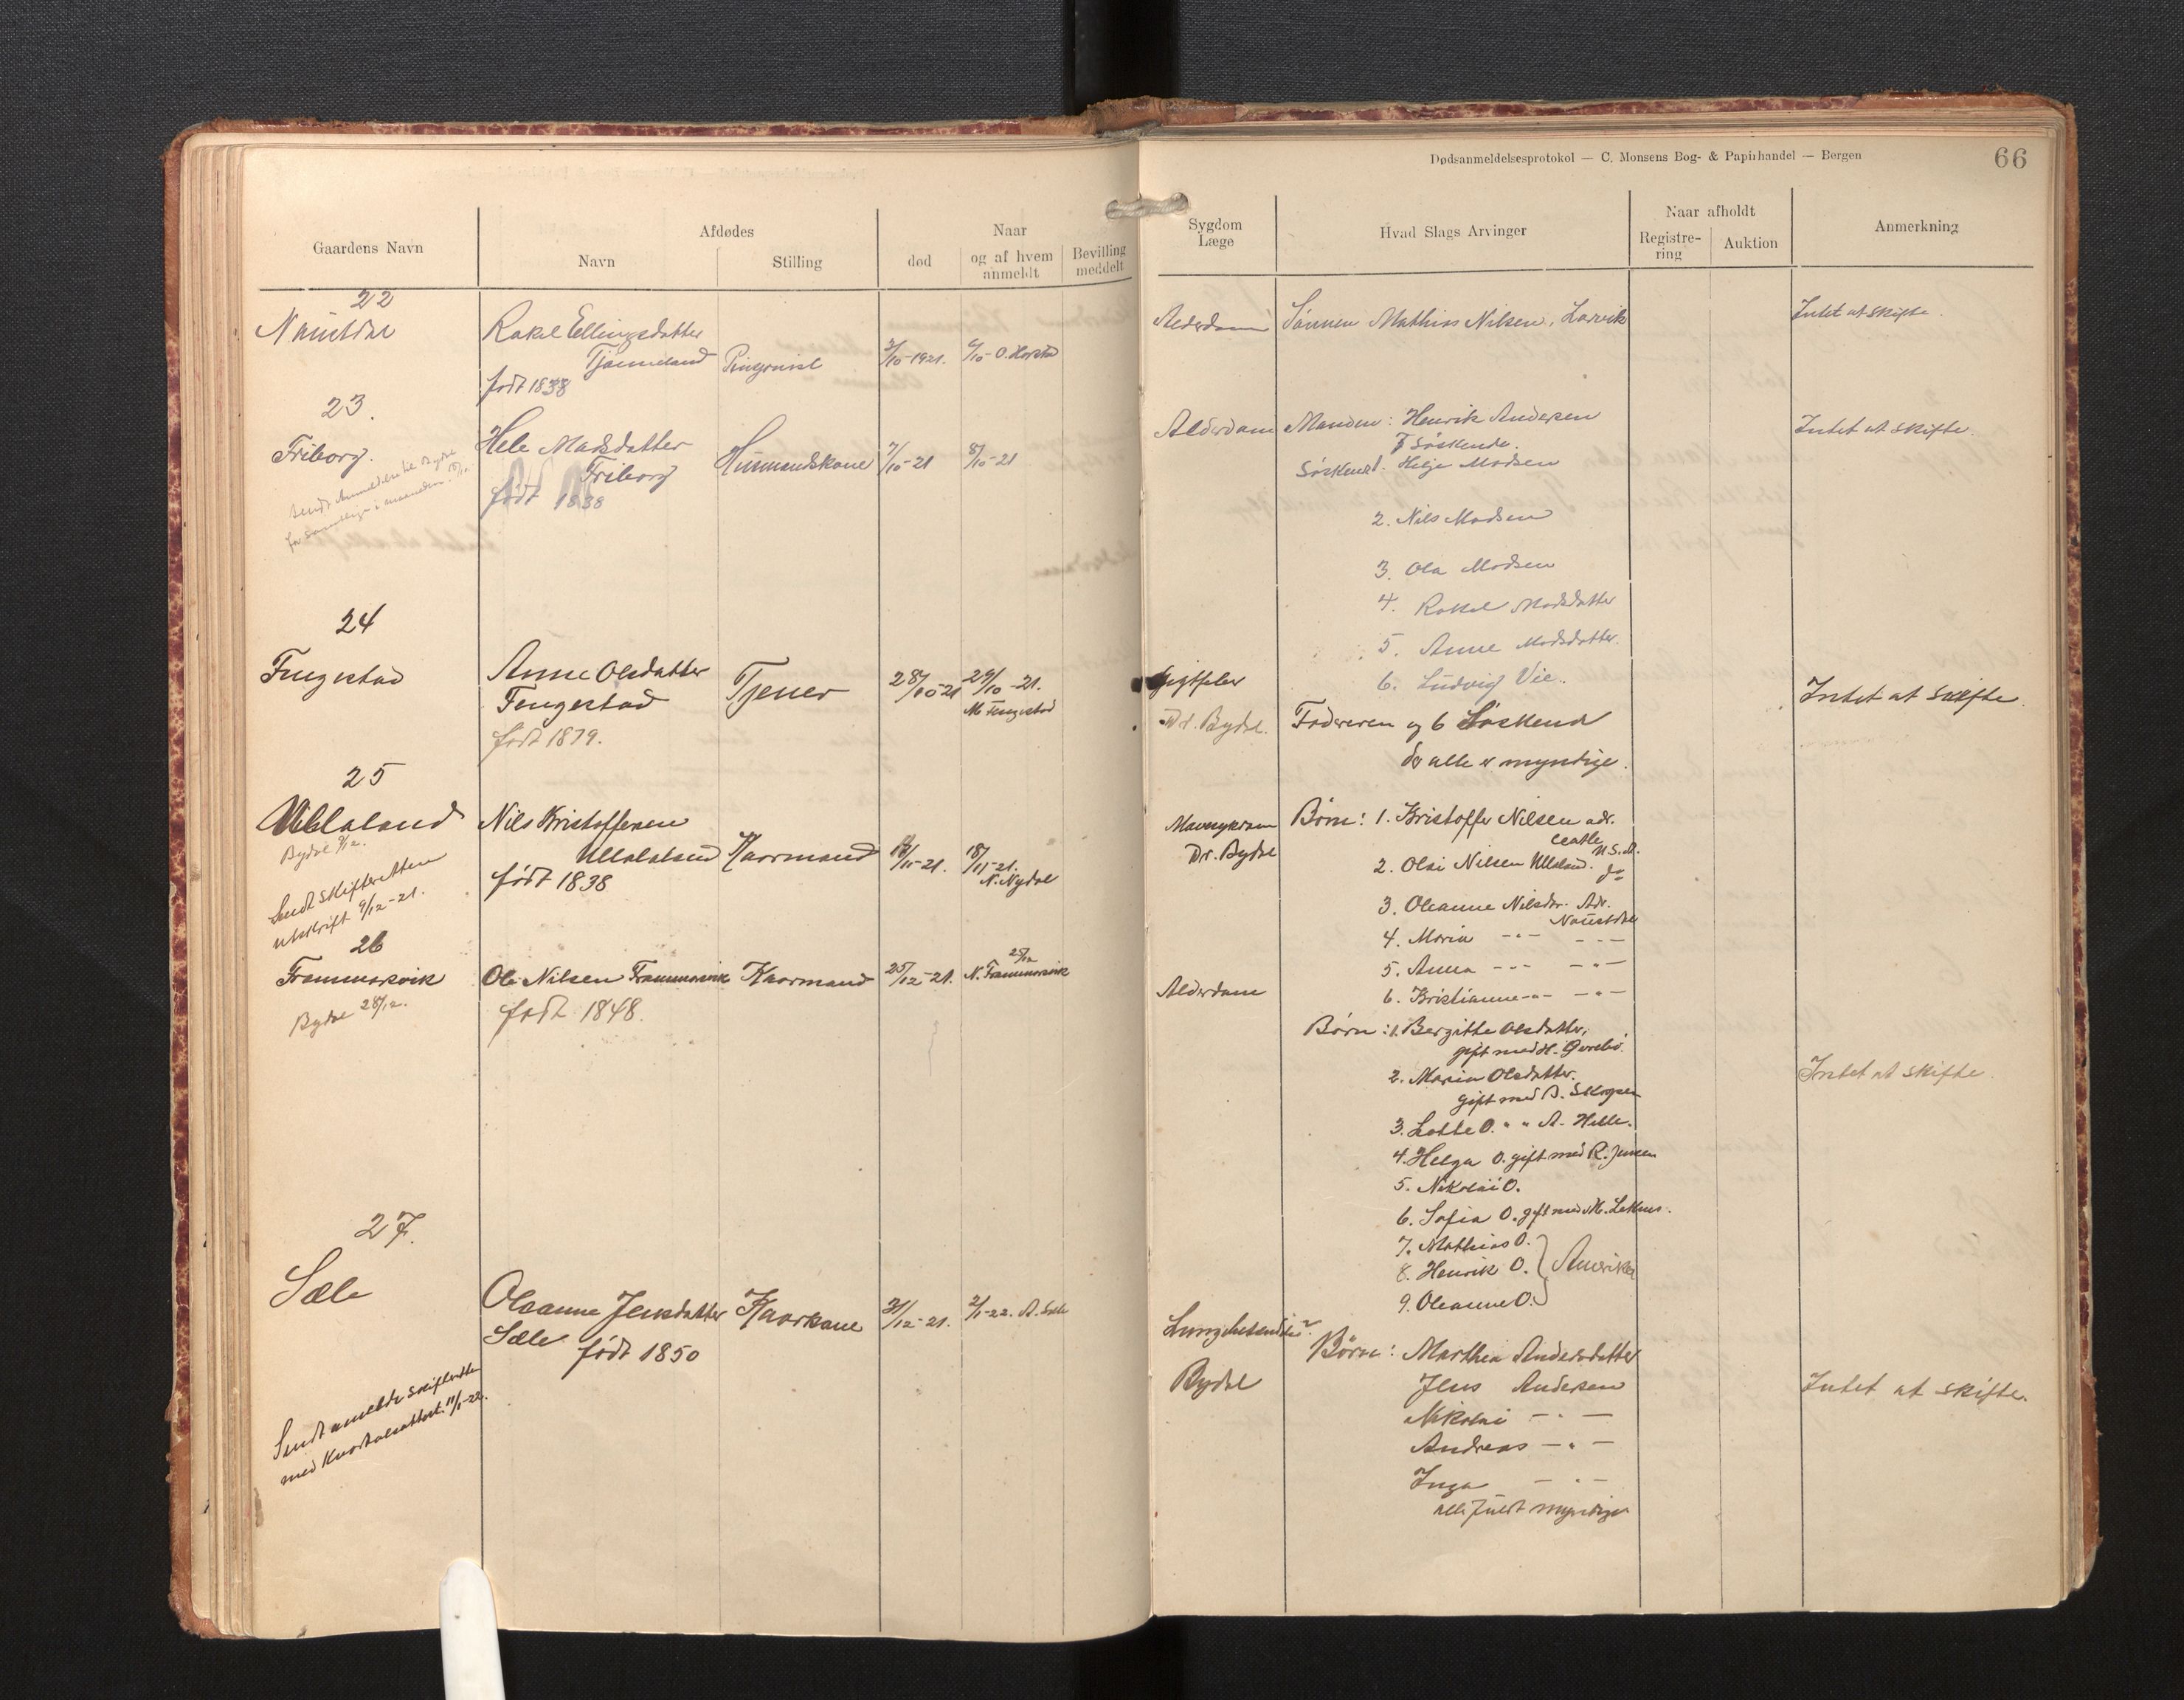 Dødsanmeldelsesprotokol — C. Monsens Bog- & Papirhandel — Bergen
66
Gaardens Navn
Afdødes
Navn
Stilling
Naar
død
og af hvem anmeldt
Bevilling meddelt
Sygdom
Læge
Hvad Slags Arvinger
Naar afholdt
Registre-
ring
Auktion
Anmerkning
22
Naustdal
Rakel Ellingsdatter
Tjønneland
født 1838
3/10-1921.
6/10-O. Horstad
Alderdom
Sønnen Mathias Nilsen, Larvik
Intet at skifte
23.
Friborg.
Hele Madsdatter
Friborg
født 1838
Husmandskone
7/10-21
8/10-21
Alderdom
Manden: Henrik Andersen
7 Søskende.
Søskend 1. Helje Madsen
2. Nils Madsen
3. Ola Madsen
4. Rakel Madsdatter
5. Anne Madsdatter.
6. Ludvig Vie.
Intet at skifte.
24
Fengestad
Anne Olsdatter
Fengestad
født 1879.
Tjener
28/10-21
29/10-21.
M Fengestad
Gigtfeber
Dr. Bydal.
Faderen og 6 Søskend
der alle er myndige.
Intet at skifte.
25
Ullaland
Bydal 9/12.
Sendt Skifteretten
utskrift 9/12-21.
Nils Kristoffersen
Ullaland
født 1838
Kaarmand
18/11-21.
N. Nydal
Mavesykdom
Dr. Bydal
Børn: 1. Kristoffer Nilsen adr.
Ceatle
U.S.A.
2. Olai Nilsen Ullaland. do
3. Oleanne Nilsdr. Adr.
Naustdal
4. Maria -"- -"-
5. Anna -"- -"-
6. Kristianne -"- -"-
26
Frammarsvik
Bydal 28/12.
Ole Nilsen Frammarsvik
født 1848.
Kaarmand
25/12-21.
25/12
N. Frammarsvik
Alderdom
Børn: 1. Bergitte Olsdatter,
gift med H. Øvrebø.
2. Maria Olsdatter.
gift med B. Skogsen
3. Lotte O. " " A. Helle.
4. Helga O. gift med R. Jensen
5. Nikolai O.
6. Sofia O. gift med M. Leknes.
7. Mathias O.
8. Henrik O. } Amerika
9. Oleanne O.
Intet at skifte
27.
Sæle
Sendt anmeldt skifteretten
med Kvartalsattest. 11/1-22.
Oleanne Jensdatter
Sæle født 1850
Kaarkone
31/12-21.
2/1-22. A. Sæle
Lungebetændelse
Bydal
Børn: Marthea Andersdatter
Jens Andersen
Nikolai -"-
Andreas -"-
Inga -"-
alle fuldt myndige
Intet at skifte.